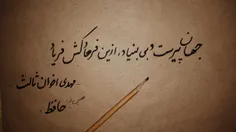 جهان پیرست و بی بنیاد، ازین فرهادکش فریاد
مهدی اخوان ثالث
حافظ